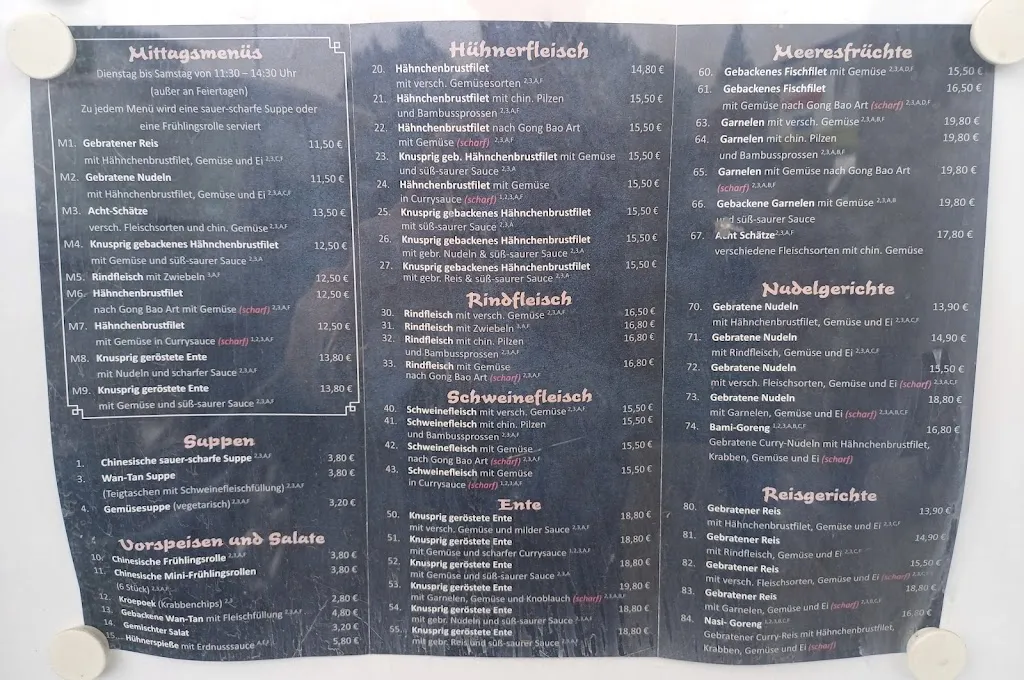 Mittagsmenüs
Dienstag bis Samstag von 11:30 – 14:30 Uhr
(außer an Feiertagen)
Zu jedem Menü wird eine sauer-scharfe Suppe oder
eine Frühlingsrolle serviert
M1. Gebratener Reis 11,50 €
mit Hähnchenbrustfilet, Gemüse und Ei 2,3,C,F
M2. Gebratene Nudeln 11,50 €
mit Hähnchenbrustfilet, Gemüse und Ei 2,3,A,C,F
M3. Acht-Schätze 13,50 €
versch. Fleischsorten und chin. Gemüse 2,3,A,F
M4. Knusprig gebackenes Hähnchenbrustfilet 12,50 €
mit Gemüse und süß-saurer Sauce 2,3,A
M5. Rindfleisch mit Zwiebeln 3,A,F 12,50 €
M6. Hähnchenbrustfilet 12,50 €
nach Gong Bao Art mit Gemüse (scharf) 2,3,A,F
M7. Hähnchenbrustfilet 12,50 €
mit Gemüse in Currysauce (scharf) 1,2,3,A,F
M8. Knusprig geröstete Ente 13,80 €
mit Nudeln und scharfer Sauce 2,3,A,F
M9. Knusprig geröstete Ente 13,80 €
mit Gemüse und süß-saurer Sauce 2,3,A,F
Suppen
1. Chinesische sauer-scharfe Suppe 2,3,A,F 3,80 €
3. Wan-Tan Suppe 3,80 €
(Teigtaschen mit Schweinefleischfüllung) 2,3,A,F
4. Gemüsesuppe (vegetarisch) 2,3,A,F 3,20 €
Vorspeisen und Salate
10. Chinesische Frühlingsrolle 2,3,A,F 3,80 €
11. Chinesische Mini-Frühlingsrollen 3,80 €
(6 Stück) 2,3,A,F
12. Kroepoek (Krabbenchips) 2,3 2,80 €
13. Gebackene Wan-Tan mit Fleischfüllung 2,3,A,F 4,80 €
14. Gemischter Salat 3,20 €
15. Hühnerspieße mit Erdnusssauce A,E,F 5,80 €
Hühnerfleisch
20. Hähnchenbrustfilet 14,80 €
mit versch. Gemüsesorten 2,3,A,F
21. Hähnchenbrustfilet mit chin. Pilzen 15,50 €
und Bambussprossen 2,3,A,F
22. Hähnchenbrustfilet nach Gong Bao Art 15,50 €
mit Gemüse (scharf) 2,3,A,F
23. Knusprig geb. Hähnchenbrustfilet mit Gemüse 15,50 €
und süß-saurer Sauce 2,3,A
24. Hähnchenbrustfilet mit Gemüse 15,50 €
in Currysauce (scharf) 1,2,3,A,F
25. Knusprig gebackenes Hähnchenbrustfilet 15,50 €
mit süß-saurer Sauce 2,3,A
26. Knusprig gebackenes Hähnchenbrustfilet 15,50 €
mit gebr. Nudeln & süß-saurer Sauce 2,3,A
27. Knusprig gebackenes Hähnchenbrustfilet 15,50 €
mit gebr. Reis & süß-saurer Sauce 2,3,A
Rindfleisch
30. Rindfleisch mit versch. Gemüse 2,3,A,F 16,50 €
31. Rindfleisch mit Zwiebeln 3,A,F 16,80 €
32. Rindfleisch mit chin. Pilzen 16,80 €
und Bambussprossen 2,3,A,F
33. Rindfleisch mit Gemüse 16,80 €
nach Gong Bao Art (scharf) 2,3,A,F
Schweinefleisch
40. Schweinefleisch mit versch. Gemüse 2,3,A,F 15,50 €
41. Schweinefleisch mit chin. Pilzen 15,50 €
und Bambussprossen 2,3,A,F
42. Schweinefleisch mit Gemüse 15,50 €
nach Gong Bao Art (scharf) 2,3,A,F
43. Schweinefleisch mit Gemüse 15,50 €
in Currysauce (scharf) 1,2,3,A,F
Ente
50. Knusprig geröstete Ente 18,80 €
mit versch. Gemüse und milder Sauce 2,3,A,F
51. Knusprig geröstete Ente 18,80 €
mit Gemüse und scharfer Currysauce 1,2,3,A,F
52. Knusprig geröstete Ente 18,80 €
mit Gemüse und süß-saurer Sauce 2,3,A
53. Knusprig geröstete Ente 19,80 €
mit Garnelen, Gemüse und Knoblauch (scharf)
54. Knusprig geröstete Ente 18,80 €
mit gebr. Nudeln und süß-saurer Sauce 2,3,A,F
55. Knusprig geröstete Ente 18,80 €
mit gebr. Reis und süß-saurer Sauce 2,3,A,F
Meeresfrüchte
60. Gebackenes Fischfilet mit Gemüse 2,3,A,D,F 15,50 €
61. Gebackenes Fischfilet 16,50 €
mit Gemüse nach Gong Bao Art (scharf) 2,3,A,D,F
63. Garnelen mit versch. Gemüse 2,3,A,B,F 19,80 €
64. Garnelen mit chin. Pilzen 19,80 €
und Bambussprossen 2,3,A,B,F
65. Garnelen mit Gemüse nach Gong Bao Art 19,80 €
(scharf) 2,3,A,B,F
66. Gebackene Garnelen mit Gemüse 2,3,A,B 19,80 €
und süß-saurer Sauce
67. Acht Schätze 2,3,A,F 17,80 €
verschiedene Fleischsorten mit chin. Gemüse
Nudelgerichte
70. Gebratene Nudeln 13,90 €
mit Hähnchenbrustfilet, Gemüse und Ei 2,3,A,C,F
71. Gebratene Nudeln 14,90 €
mit Rindfleisch, Gemüse und Ei 2,3,A,C,F
72. Gebratene Nudeln 15,50 €
mit versch. Fleischsorten, Gemüse und Ei (scharf) 2,3,A,C,F
73. Gebratene Nudeln 18,80 €
mit Garnelen, Gemüse und Ei (scharf) 2,3,A,B,C,F
74. Bami-Goreng 1,2,3,A,B,C,F 16,80 €
Gebratene Curry-Nudeln mit Hähnchenbrustfilet,
Krabben, Gemüse und Ei (scharf)
Reisgerichte
80. Gebratener Reis 13,90 €
mit Hähnchenbrustfilet, Gemüse und Ei 2,3,C,F
81. Gebratener Reis 14,90 €
mit Rindfleisch, Gemüse und Ei 2,3,C,F
82. Gebratener Reis 15,50 €
mit versch. Fleischsorten, Gemüse und Ei (scharf)
83. Gebratener Reis 18,80 €
mit Garnelen, Gemüse und Ei (scharf) 2,3,B,C,F
84. Nasi- Goreng 1,2,3,B,C,F 16,80 €
Gebratener Curry-Reis mit Hähnchenbrustfilet,
Krabben, Gemüse und Ei (scharf)